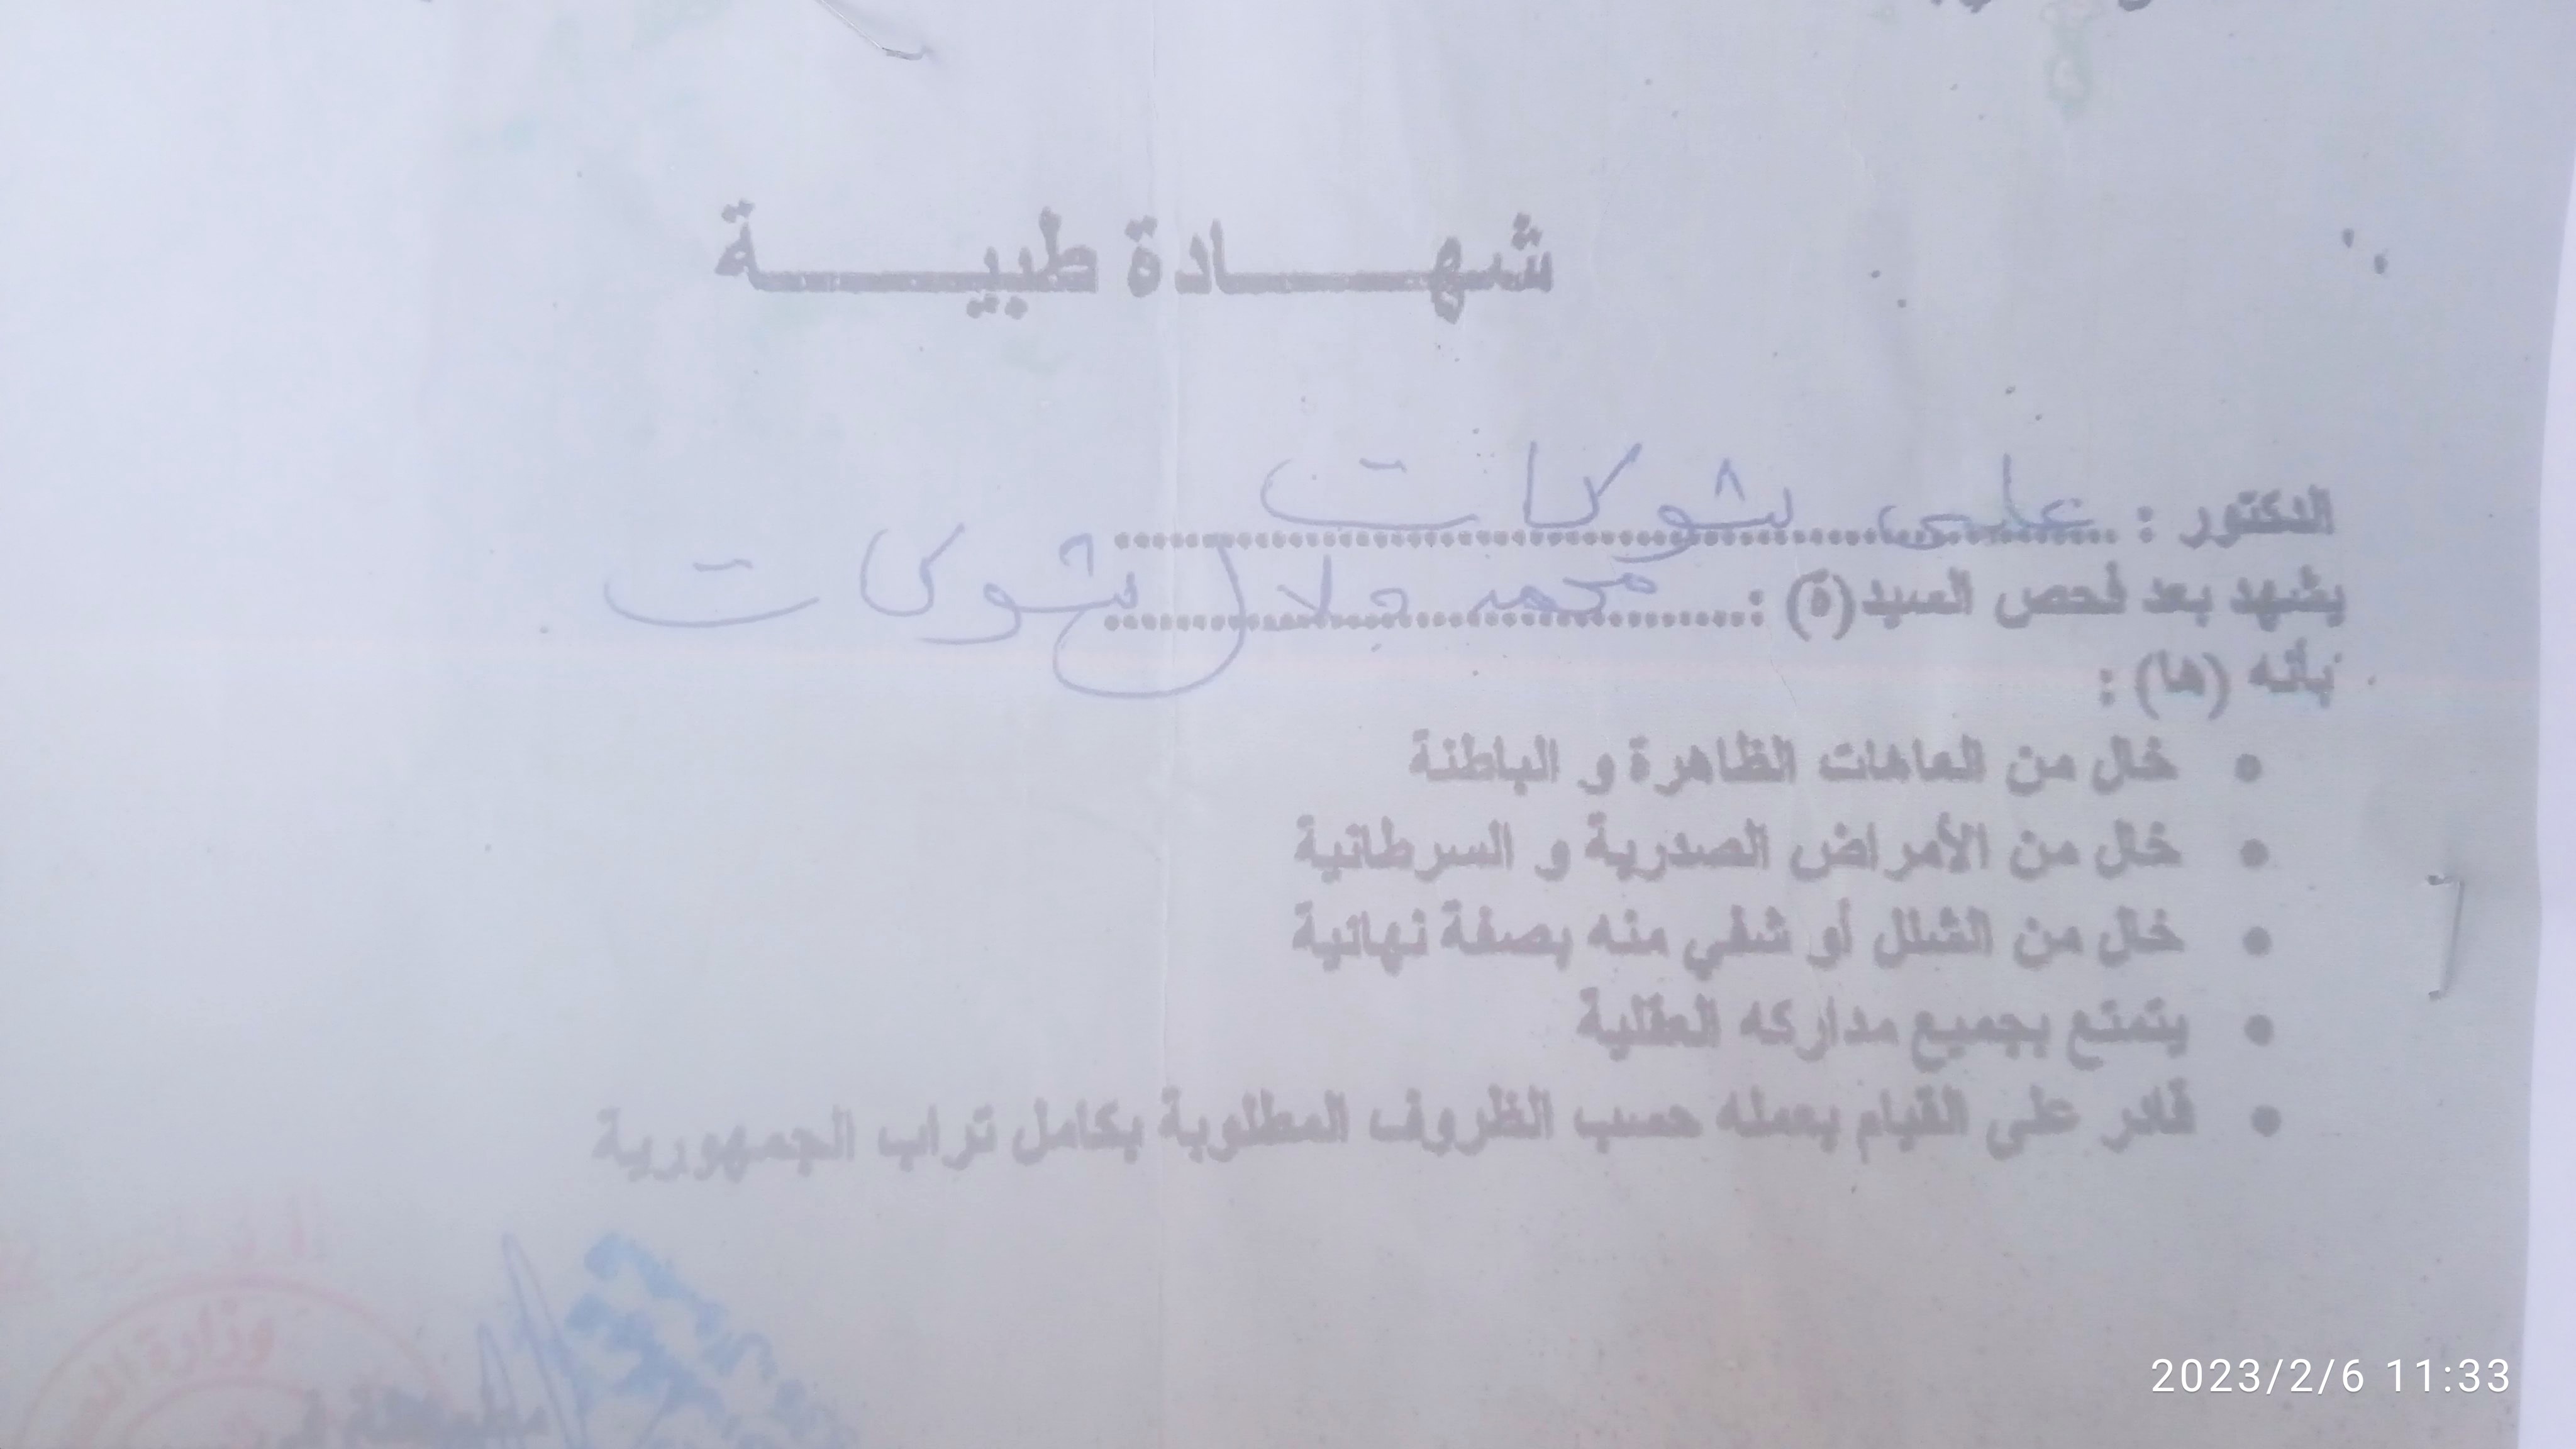 شهادة طبية
الدكتور : علي شوكات
يشهد بعد فحص السيد(ة) : محمد جلال شوكات
بأنه (ها) :
• خال من العاهات الظاهرة و الباطنة
• خال من الأمراض الصدرية و السرطانية
• خال من الشلل أو شفي منه بصفة نهائية
• يتمتع بجميع مداركه العقلية
• قادر على القيام بعمله حسب الظروف المطلوبة بكامل تراب الجمهورية
وزارة
2023/2/6 11:33